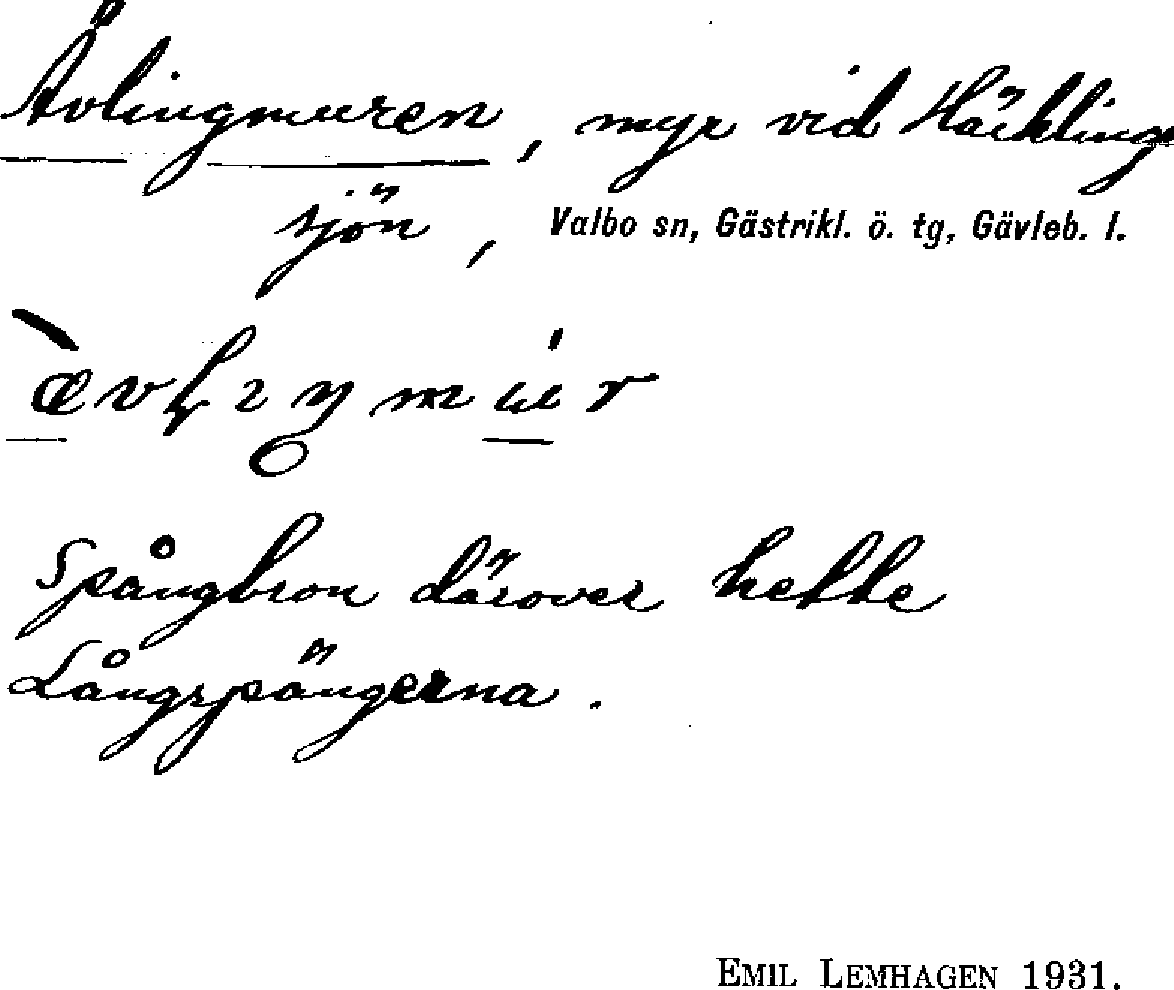 Ävlingmuren, myr vid Häcklinge
sjön, Valbo sn, Gästrikl. ö. tg, Gävleb. l.
Spångbron därover hette
Långspängerna.
EMIL LEMHAGEN 1931.